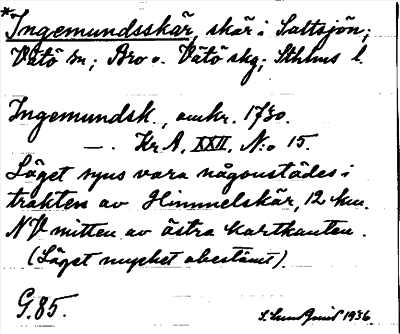 *Ingemundsskär, skär i Saltsjön;
Vätö sn; Bro o. Vätö skg; Sthlms l.
Ingemundsk., omkr. 1730.
—. Kr A, XXII, N:o 15.
Läget synes vara någonstädes i
trakten av Himmelskär, 12 km.
NV mitten av östra kartkanten.
(Läget mycket obestämt).
G.85.
S. Lundqvist 1936